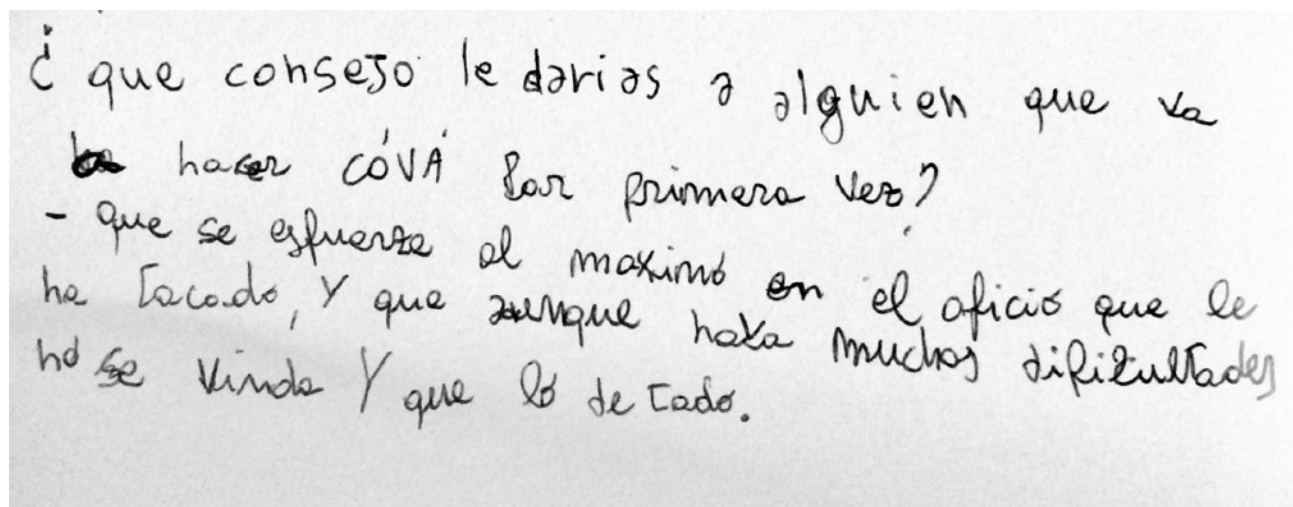 ¿ que consejo le darias a alguien que va
hacer CÓVA por primera vez?
- que se esfuerze al maximo en el oficio que le
ha tocado, y que aunque haya muchas dificultades
no se rinda y que lo de todo.